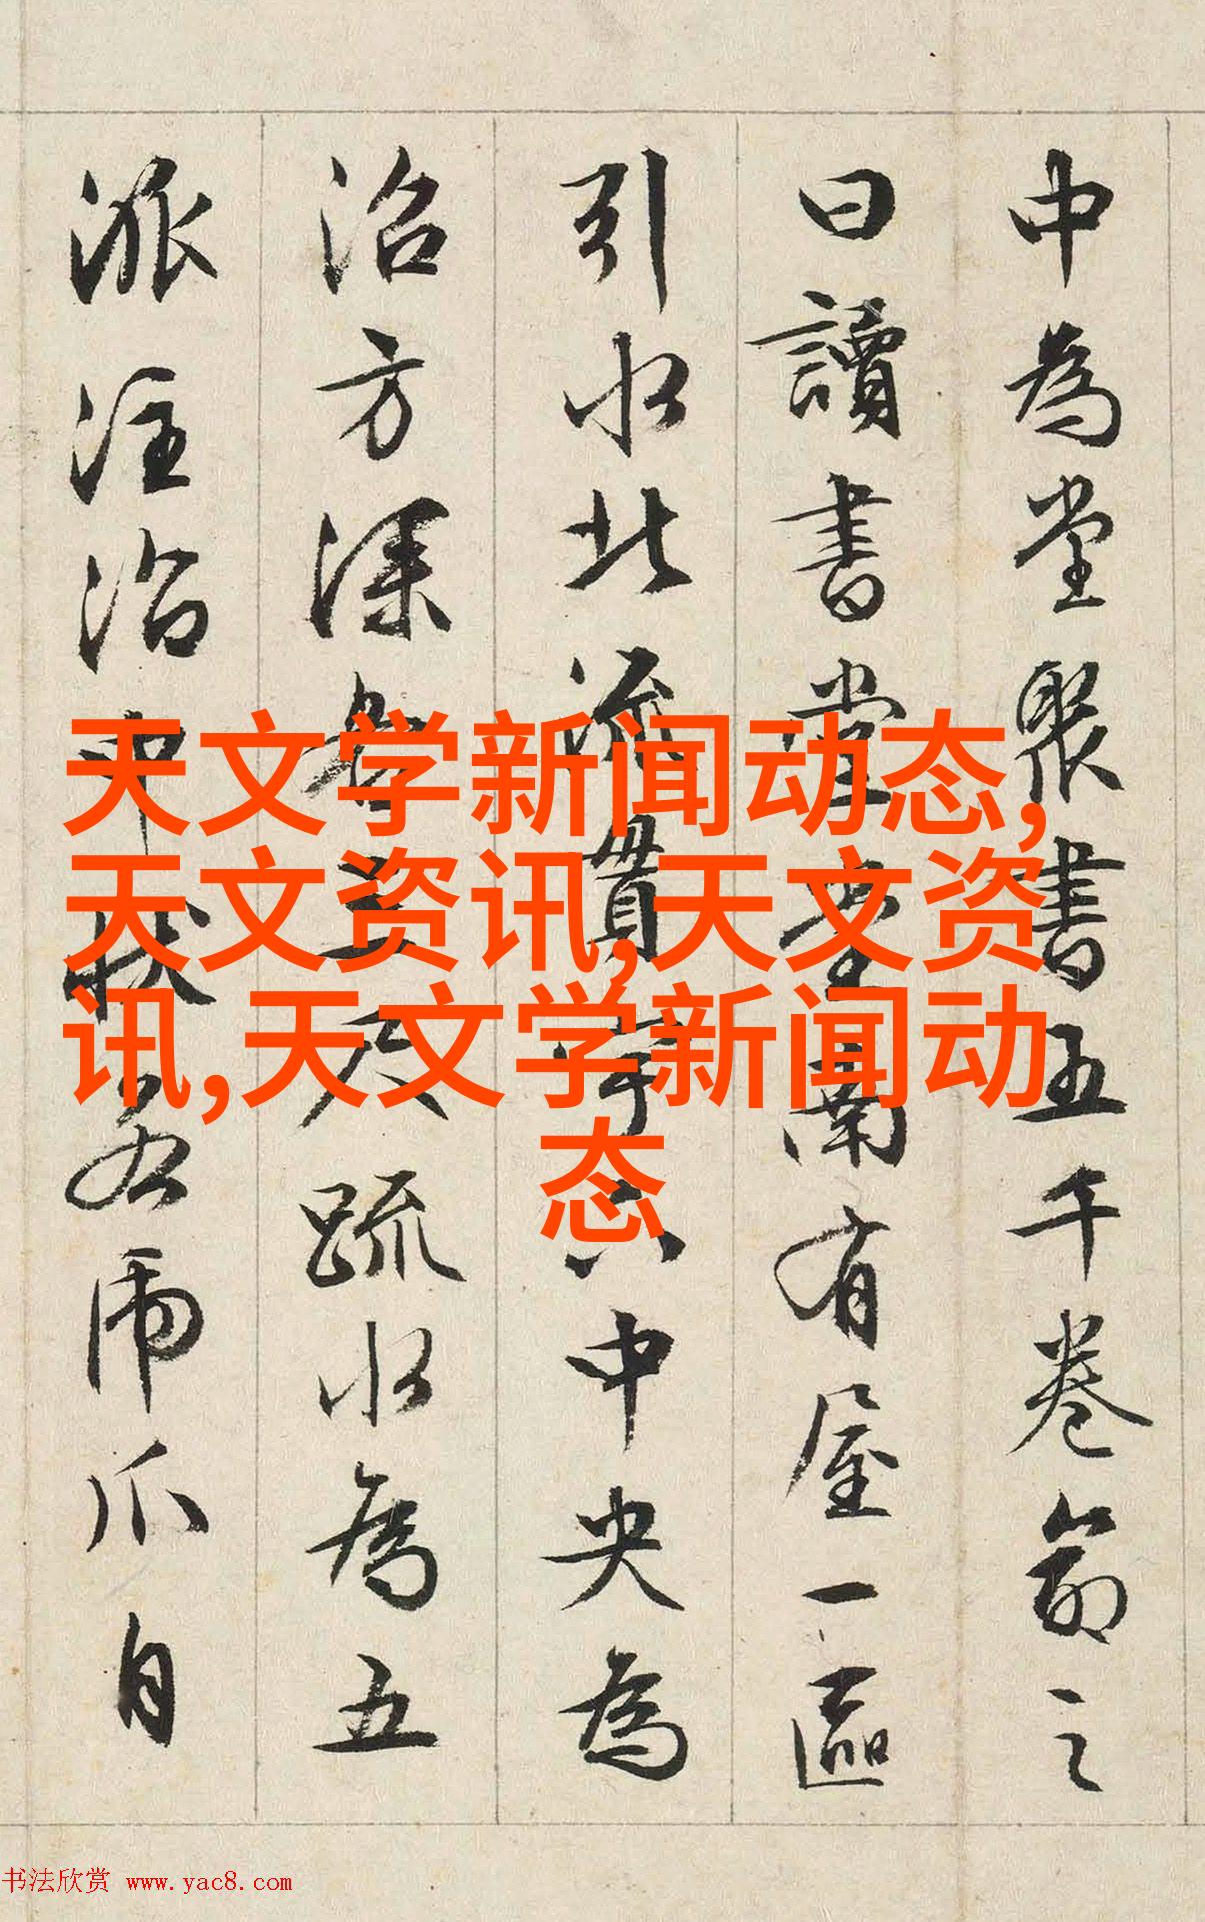 中為堂聚書五千卷命之
曰讀書堂堂南有屋一區
引水北流貫宇下中央為
沼方深各三尺疏水為五
派注沼中狀若虎爪自
天文学新闻动态,
天文资讯,天文资
讯,天文学新闻动
态
书法欣赏 www.yac8.com